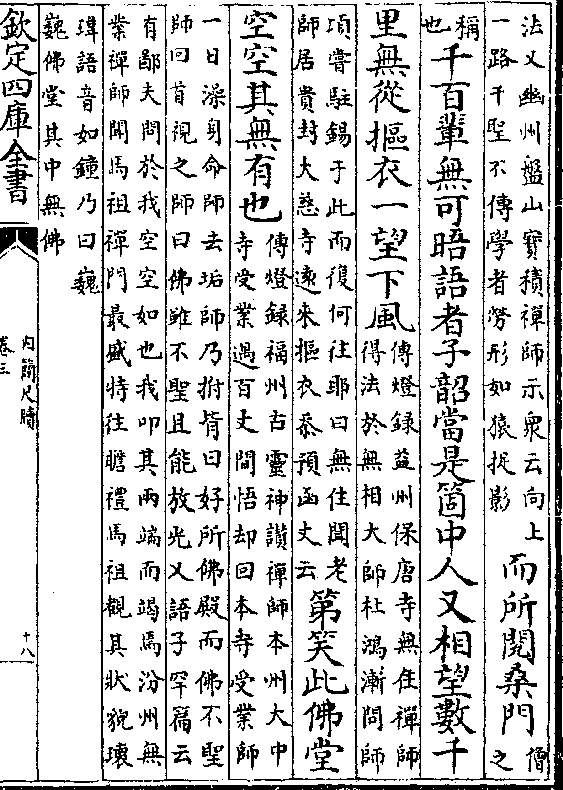 法又幽州盤山寳積禪師示衆云向上
一路千聖不傳學者勞形如猿捉影
而所閲桑門
僧
之
稱
也
千百輩無可晤語者子韶當是箇中人又相望數千
里無從摳衣一望下風
傳燈録益州保唐寺無住禪師
得法於無相大師杜鴻漸問師
頃嘗駐錫于此而復何往耶曰無住聞老
師居貴封大慈寺遠來摳衣忝預函丈云
第笑此佛堂
空空其無有也
傳燈録福州古靈神讃禪師本州大中
寺受業遇百丈開悟却回本寺受業師
一日澡身命師去垢師乃拊背曰好所佛殿而佛不聖
師回首視之師曰佛雖不聖且能放光又語子罕篇云
有鄙夫問於我空空如也我叩其兩端而竭焉汾州無
業禪師聞馬祖禪門最盛特往瞻禮馬祖觀其狀貌瓌
瑋語音如鐘乃曰巍
巍佛堂其中無佛
欽定四庫全書
内簡尺牘
卷三
十八